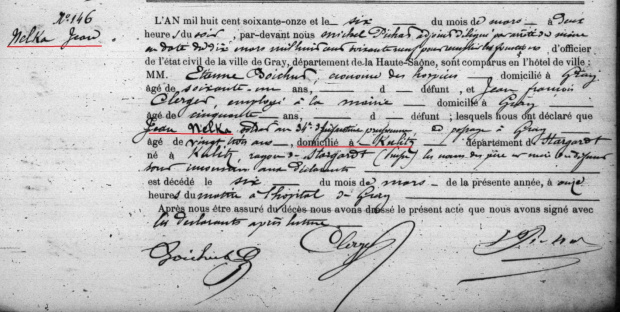 N° 146
Nelka Jean
L'AN mil huit cent soixante-onze et le six du mois de mars à deux
heures du soir, par-devant nous Michel Pichat adjoint délégué par arrêté du maire
en date du dix mars mil huit cent soixante neuf pour remplir les fonctions, d'officier
de l'état civil de la ville de Gray, département de la Haute-Saône, sont comparus en l'hôtel de ville :
MM. Etienne Boichut, économe des hospices, domicilié à Gray
âgé de soixante-un ans, d défunt, et Jean françois
Clerget, employé à la mairie domicilié à Gray
âgé de cinquante ans, d défunt ; lesquels nous ont déclaré que
Jean Nelka soldat au 34e d'infanterie prussienne, de passage à Gray
âgé de vingt trois ans, domicilié à Kulitz département de Stargardt
né à Kulitz, de Stargardt les noms des père et mère du défunt
sont inconnus aux déclarants
est décédé le six du mois de mars de la présente année, à onze
heures du matin à l'hôpital de Gray
Après nous être assuré du décès nous avons dressé le présent acte que nous avons signé avec
les déclarants après lecture
Boichut Clerget